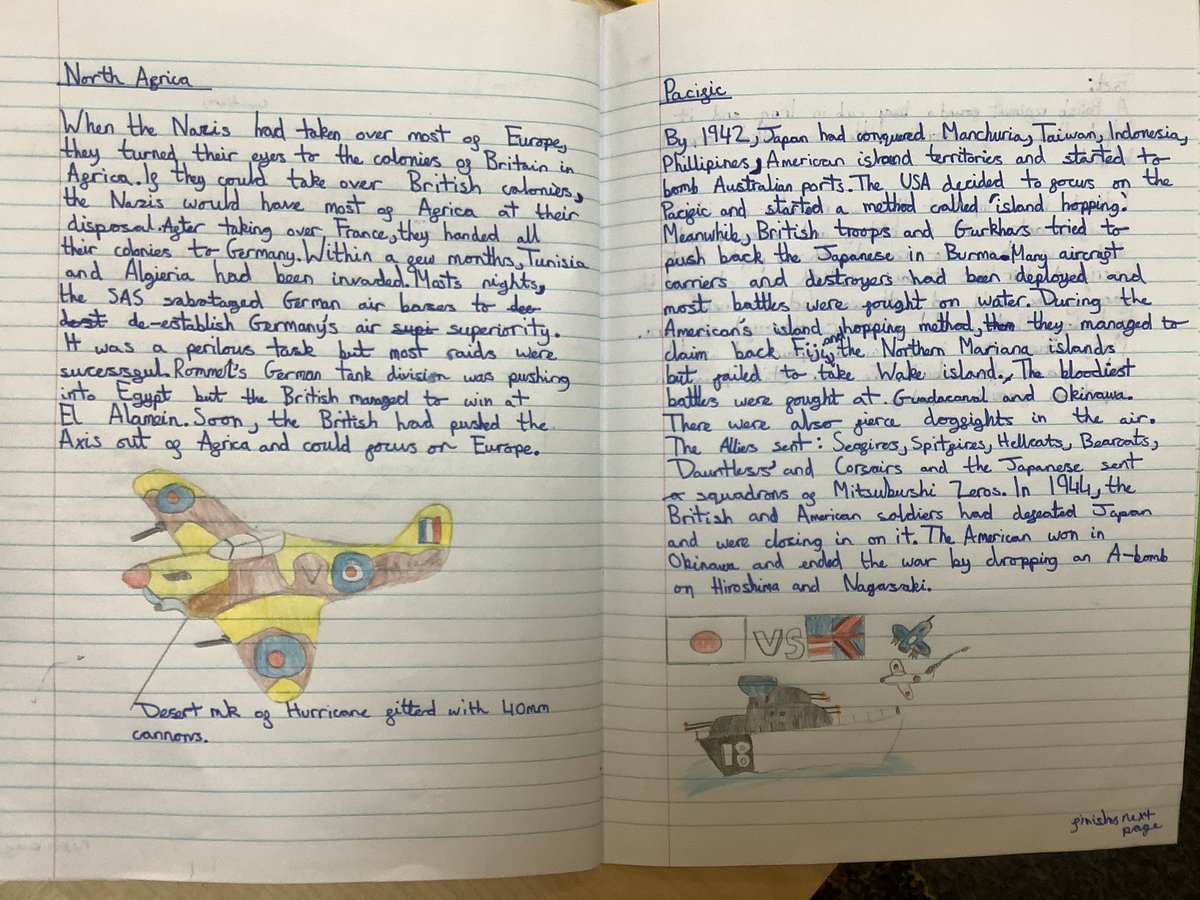 North Africa
When the Nazis had taken over most of Europe,
they turned their eyes to the colonies of Britain in
Africa. If they could take over British colonies,
the Nazis would have most of Africa at their
disposal. After taking over France, they handed all
their colonies to Germany. Within a few months, Tunisia
and Algieria had been invaded. Mosts nights,
the SAS sabotaged German air bases to
de-establish Germany's air supi superiority.
It was a perilous task but most raids were
sucessful. Rommel's German tank division was pushing
into Egypt but the British managed to win at
El Alamein. Soon, the British had pushed the
Axis out of Africa and could focus on Europe.
V
Desert mk of Hurricane fitted with 40mm
cannons.
Pacific
By 1942, Japan had conquered Manchuria, Taiwan, Indonesia,
Phillipines, American island territories and started to
bomb Australian ports. The USA decided to focus on the
Pacific and started a method called 'island hopping'.
Meanwhile, British troops and Gurkhas tried to
push back the Japanese in Burma. Many aircraft
carriers and destroyers had been deployed and
most battles were fought on water. During the
American's island hopping method, them they managed to
claim back Fiji, and the Northern Mariana islands
but failed to take Wake island. The bloodiest
battles were fought at Guadacanal and Okinawa.
There were also fierce dogfights in the air.
The Allies sent: Seafires, Spitfires, Hellcats, Bearcats,
Dauntless' and Corsairs and the Japanese sent
squadrons of Mitsubushi Zeros. In 1944, the
British and American soldiers had defeated Japan
and were closing in on it. The American won in
Okinawa and ended the war by dropping an A-bomb
on Hiroshima and Nagasaki.
VS
18
finishes next
page